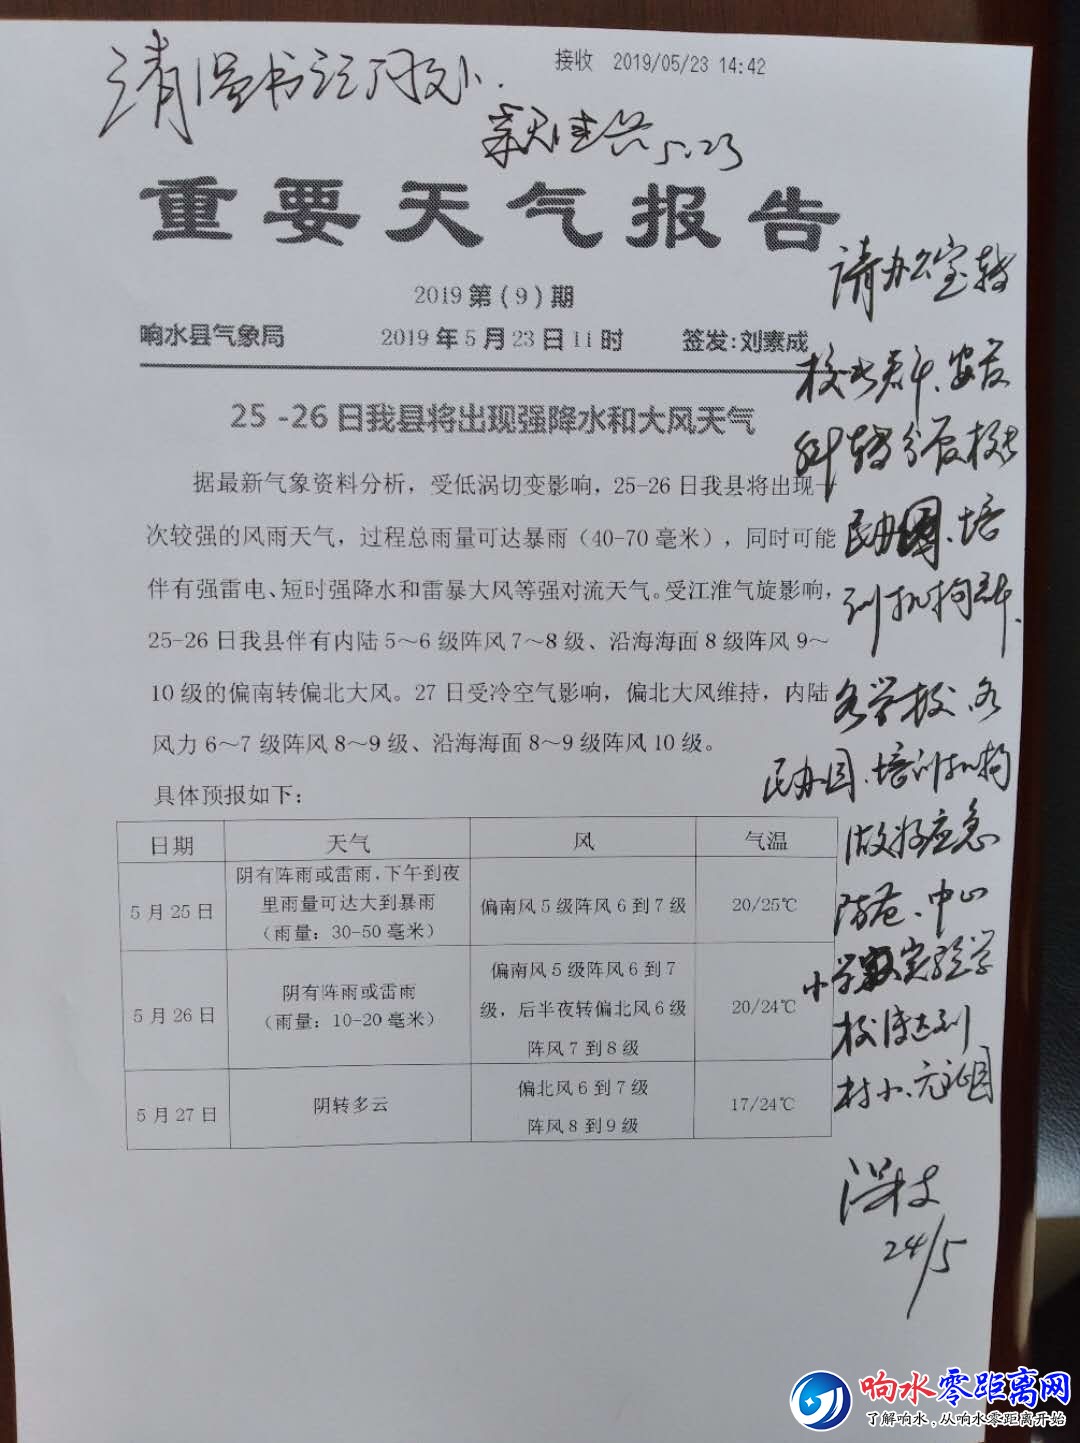 接收 2019/05/23 14:42
请温书记阅示.
5.23
重要天气报告
2019第(9)期
响水县气象局 2019年5月23日11时 签发:刘素成
25-26日我县将出现强降水和大风天气
据最新气象资料分析，受低涡切变影响，25-26日我县将出现一
次较强的风雨天气，过程总雨量可达暴雨（40-70毫米），同时可能
伴有强雷电、短时强降水和雷暴大风等强对流天气。受江淮气旋影响，
25-26日我县伴有内陆5～6级阵风7～8级、沿海海面8级阵风9～
10级的偏南转偏北大风。27日受冷空气影响，偏北大风维持，内陆
风力6～7级阵风8～9级、沿海海面8～9级阵风10级。
具体预报如下：
日期 天气 风 气温
5月25日 阴有阵雨或雷雨,下午到夜里雨量可达大到暴雨（雨量：30-50毫米） 偏南风5级阵风6到7级 20/25℃
5月26日 阴有阵雨或雷雨（雨量：10-20毫米） 偏南风5级阵风6到7级，后半夜转偏北风6级阵风7到8级 20/24℃
5月27日 阴转多云 偏北风6到7级阵风8到9级 17/24℃
请办公室转
校长群、安发
科转分管校长
民办园、培
训机构群.
各学校、各
民办园、培训机构
做好应急
防范、中心
小学实验学
校传达到
村小、
24/5
响水零距离网
了解响水，从响水零距离开始